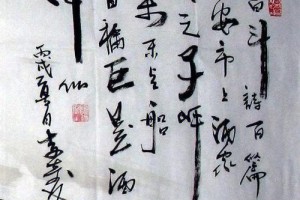 白斗詩百篇
安市上酒家
天子呼
來不上船
自稱臣是酒
中仙
丙戌夏月李